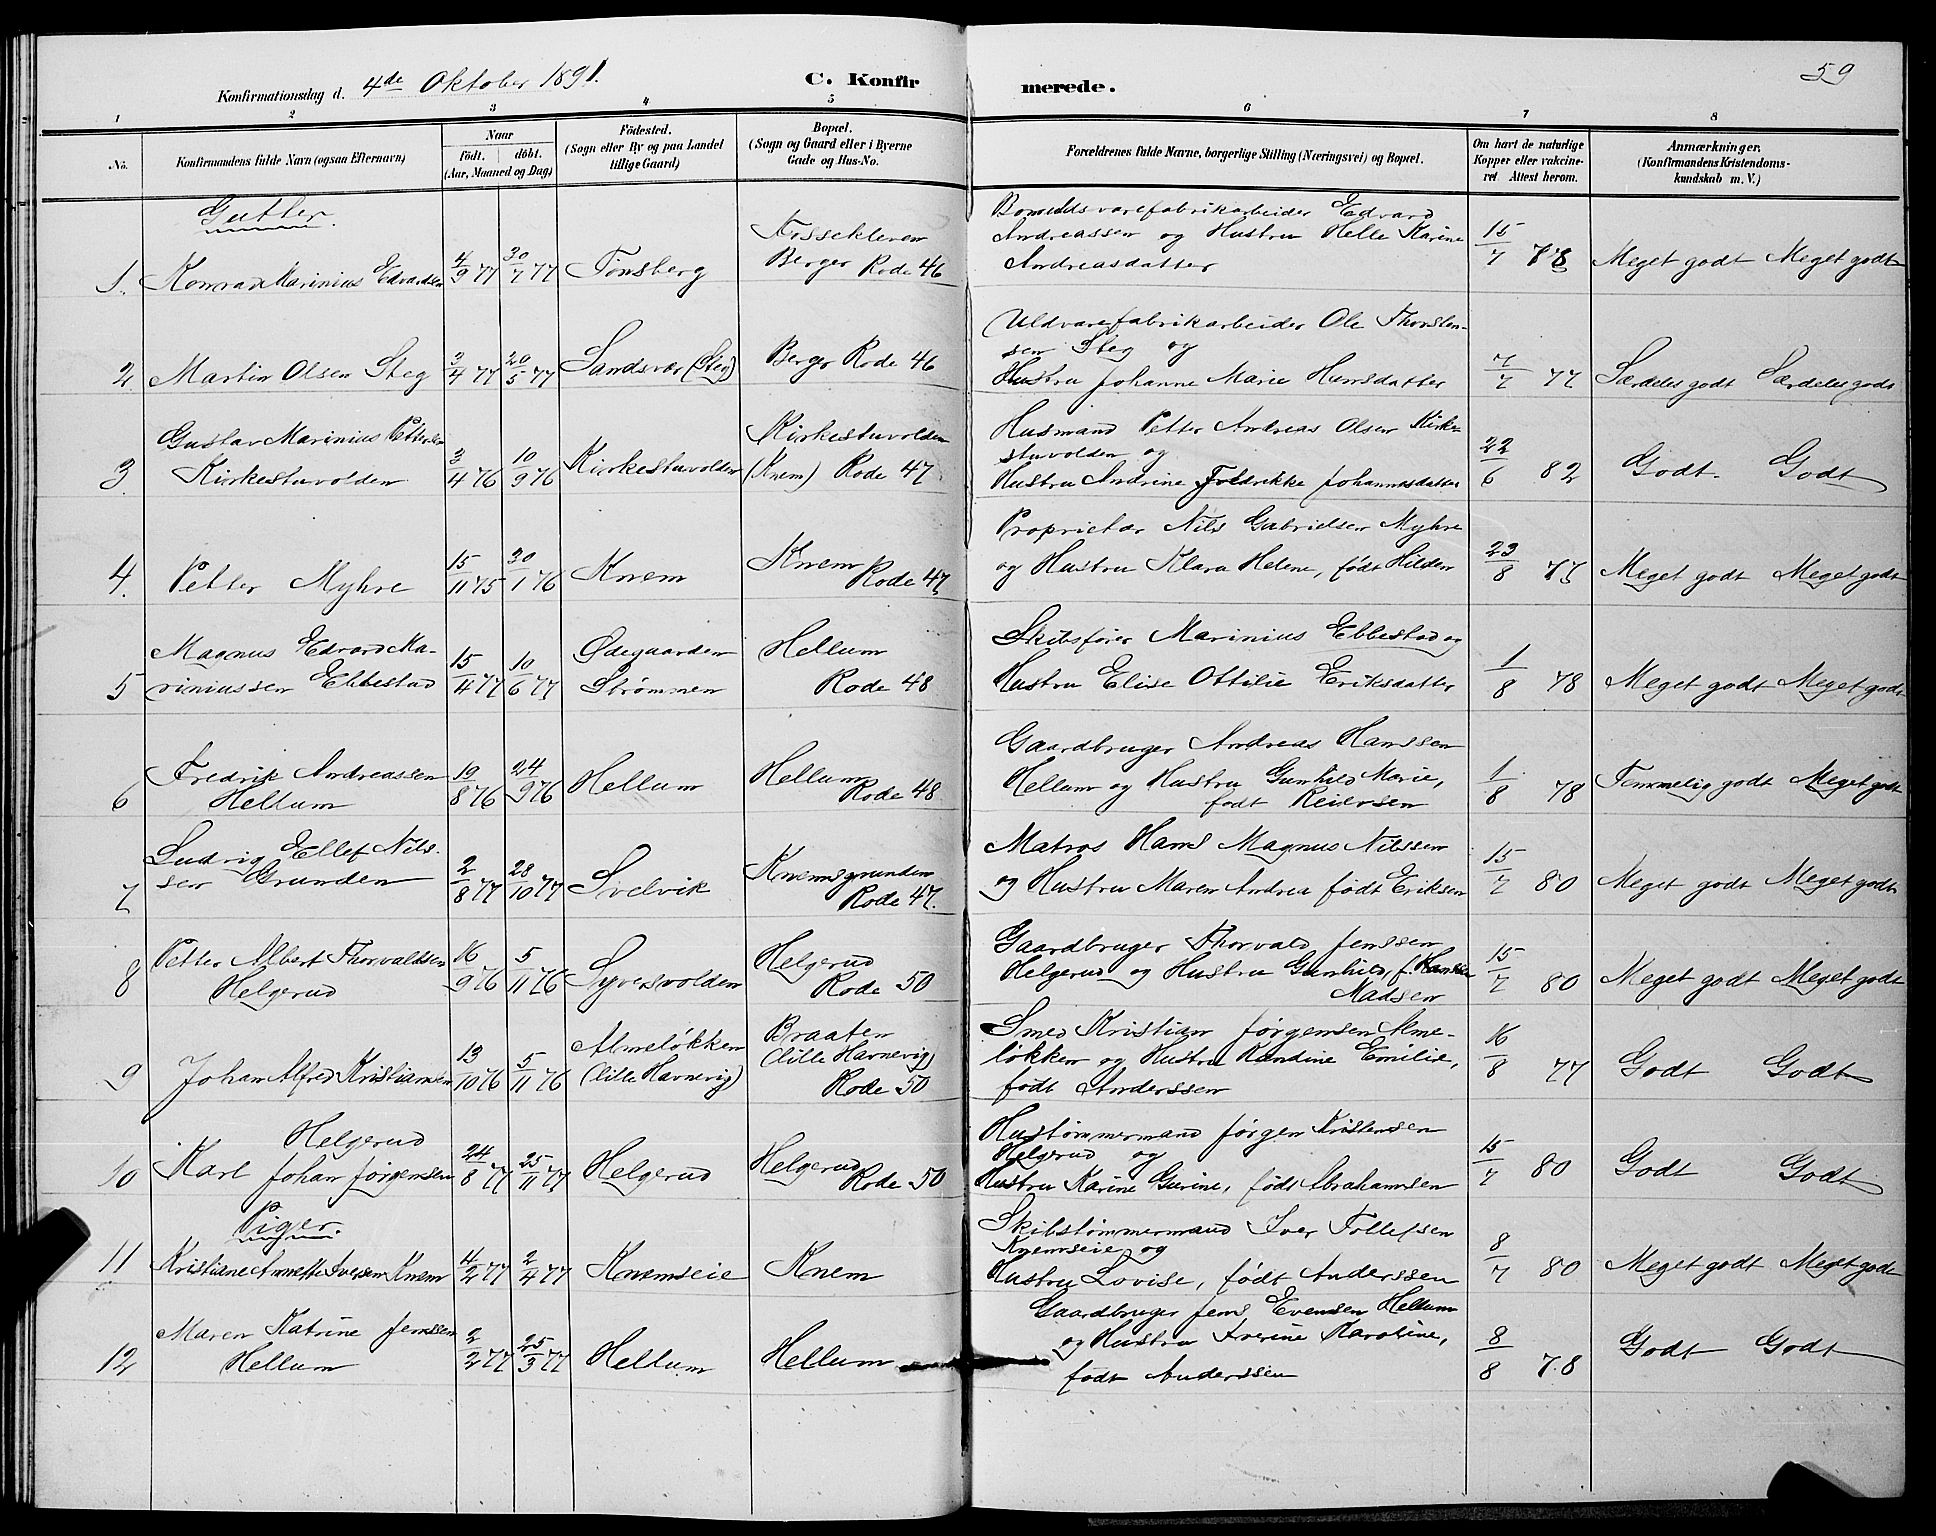 59
Konfirmationsdag d. 4de Oktober 1891.
C. Konfirmerede.
1 2 3 4 5 6 7 8
No.
Konfirmandens fulde Navn (ogsaa Efternavn)
Naar
födt. döbt.
(Aar, Maaned og Dag)
Födested.
(Sogn eller By og paa Landet
tillige Gaard)
Bopæl.
(Sogn og Gaard eller i Byerne
Gade og Hus-No.
Forældrenes fulde Navne, borgerlige Stilling (Næringsvei) og Bopæl.
Om havt de naturlige
Kopper eller vakcine-
ret. Attest herom.
Anmærkninger.
(Konfirmandens Kristendoms-
kundskab m. V.)
Gutter.
1. Konrad Marinius Edvardsen
4/9 77 30/7 77
Tønsberg
Fossekleven
Berger Rode 46
Bomuldsvarefabrikarbeider Edvard
Andreassen og Hustru Helle Karine
Andreasdatter
15/7 78
Meget godt Meget godt
2 Martin Olsen Steg
3/4 77 20/5 77
Sandsvær (Steg)
Berger Rode 46
Uldvarefabrikarbeider Ole Thorsten-
sen Steg og
Hustru Johanne Marie Hansdatter
7/7 77
Særdeles godt Særdeles godt
3 Gustav Marinius Pettersen
Kirkestuvolden
3/4 76 10/9 76
Kirkestuvolden
Kirkestuvolden
(Knem) Rode 47
Husmand Petter Andreas Olsen Kirke-
stuvolden og
Hustru Andrine Fredrikke Johannesdatter
22/6 82
Godt. Godt
4. Petter Myhre
15/11 75 30/1 76
Knem
Knem
Rode 47
Proprietær Nils Gabrielsen Myhre
og Hustru Klara Helene, født Hilden
23/8 75
Meget godt Meget godt
5 Magnus Edvard Ma-
riniussen Ebbestad
15/4 77 10/6 77
Ødegaarden
Strømmen
Hellum
Rode 48
Skibsfører Marinius Ebbestad og
Hustru Elise Ottilie Eriksdatter
1/8 78
Meget godt Meget godt
6 Fredrik Andreassen
Hellum
19/8 76 24/9 76
Hellum
Hellum
Rode 48
Gaardbruger Andreas Hanssen
Hellum og Hustru Gunhild Marie,
født Reiersen
1/8 78
Temmelig godt Meget godt
7 Ludvig Ellef Nils-
sen Grunden
2/8 77 28/10 77
Svelvik
Knemsgrunden
Rode 47.
Matros Hans Magnus Nilssen
og Hustru Maren Andrea født Eriksen
15/7 80
Meget godt Meget godt
8 Petter Albert Thorvaldsen
Helgerud
16/9 76 5/11 76
Syversvolden
Helgerud
Rode 50
Gaardbruger Thorvald Jenssen
Helgerud og Hustru Gunhild, f. Hansen
Madsen
15/7 80
Meget godt Meget godt
9 Johan Alfred Kristiansen
13/10 76 5/11 76
Almeløkken
(lille Havnevig)
Braaten
(lille Havnevig)
Rode 50
Smed Kristian Jørgensen Alme-
løkken og Hustru Randine Emilie,
født Anderssen
16/8 77
Godt Godt
Helgerud
10 Karl Johan Jørgensen
24/8 77 25/11 77
Helgerud
Helgerud
Rode 50
Hustømmermand Jørgen Kristensen
Helgerud og
Hustru Karine Gurine, født Abrahamsen
15/7 80
Godt Godt
Piger.
11 Kristiane Annette Iversen Knem
4/2 77 2/4 77
Knemseie
Knem
Skibstømmermand Iver Tollefsen
Knemseie og
Hustru Lovise, født Anderssen
8/7 80
Meget godt Meget godt
12 Maren Katrine Jenssen
Hellum
2/2 77 25/3 77
Hellum
Hellum
Gaardbruger Jens Evensen Hellum
og Hustru Iverine Karoline,
født Anderssen
8/8 78
Godt Godt